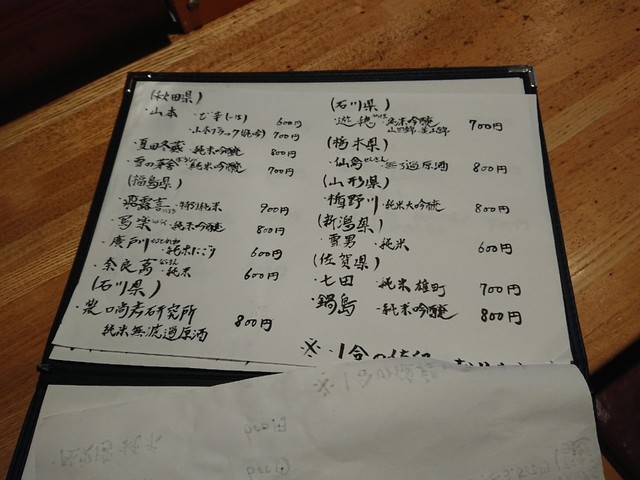 (秋田県)
・山本 ・ど辛(しぼ) 600円
・山本ブラック(純吟) 700円
・夏田冬蔵 ・純米吟醸 800円
・雪の茅舎 ・純米吟醸 700円
(福島県)
・飛露喜 ・特別純米 900円
・写楽 ・純米吟醸 800円
・廣戸川 ・純米にごり 600円
・奈良萬 ・純米 600円
(石川県)
・農口尚彦研究所 800円
純米無濾過原酒
(石川県)
・遊穂 ・純米吟醸 700円
山田錦 美山錦
(栃木県)
・仙禽 せんきん ・無ろ過原酒 800円
(山形県)
・楯野川 ・純米大吟醸 800円
(新潟県)
・雪男 ・純米 600円
(佐賀県)
・七田 ・純米 雄町 700円
・鍋島 ・純米吟醸 800円
※・1合の値段